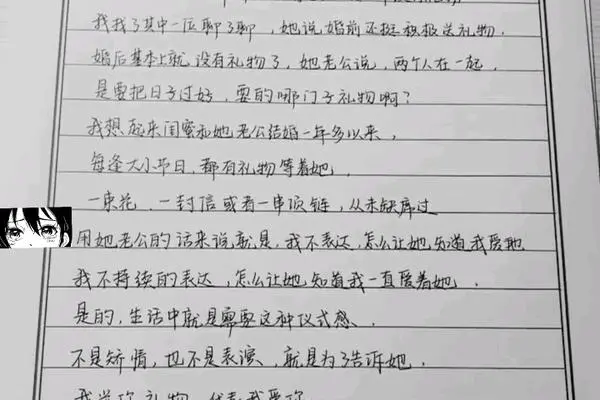 我找了其中一位聊了聊，她说婚前还挺积极送礼物，
婚后基本上就没有礼物了，她老公说，两个人在一起，
是要把日子过好，要的哪门子礼物啊？
我想起来闺蜜和她老公结婚一年多以来，
每逢大小节日，都有礼物等着她，
一束花、一封信或者一串项链，从未缺席过
用她老公的话来说就是，我不表达，怎么让她知道我爱她
我不持续的表达，怎么让她知道我一直爱着她，
是的，生活中就是需要这种仪式感、
不是矫情，也不是表演、就是为了告诉她，